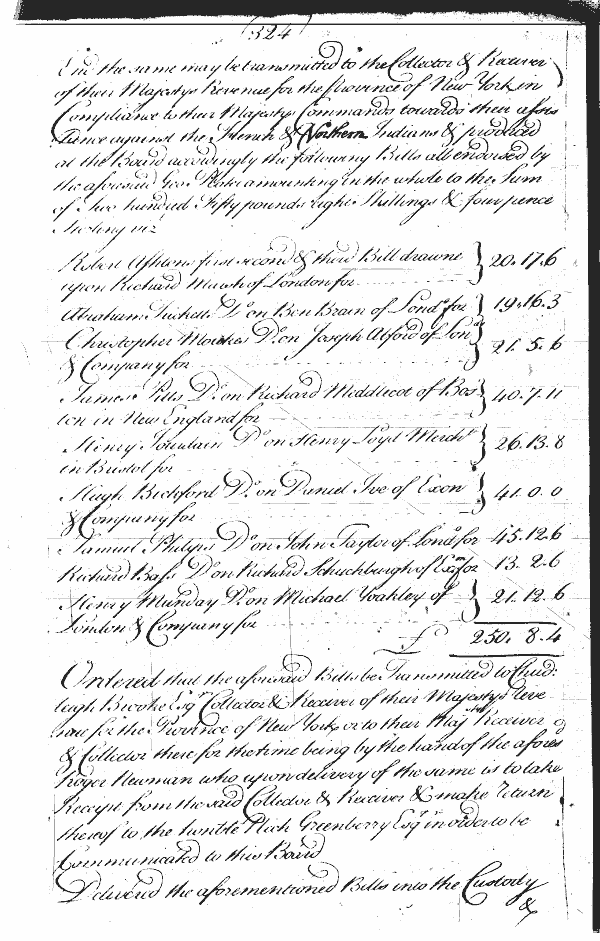 (324)
End the same may be transmitted to the Collector & Receiver
of their Majestys Revenue for the Province of New York in
Compliance to their Majestys Commands towards their assis
tance against the French & Northern Indians & produced
at the Board accordingly the following Bills all endorsed by
the aforesaid Geo: Plater amounting in the whole to the Sum
of Two hundred Fifty pounds eight Shillings & four pence
Sterling viz
Robert Ashtons first second & third Bill drawne } 20. 17. 6
upon Richard Marsh of London for
Abraham Do on Ben Brain of Lond for } 19. 16. 3
Christopher Do on Joseph Alford of Lon } 21. 5. 6
& Company for
James Pitts Do on Richard Middlecot of Bos } 40. 7. 11
ton in New England for
Henry Fountain Do on Henry Loyd Mercht } 26. 13. 8
in Bristol for
Hugh Bickford Do on Daniel Ive of Exon } 41. 0. 0
& Company for
Samuel Philips Do on John Taylor of Lond for 45. 12. 6
Richard Bass Do on Richard of for 13. 2. 6
Henry Munday Do on Michael Yoakley of } 21. 12. 6
London & Company for
£ 250. 8. 4
Ordered that the aforesaid Bills be Transmitted to Chid:
leigh Brooke Esqr Collector & Receiver of their Majestys Reve
nue for the Province of New York or to their Majtys Receiver
& Collector there for the time being by the hand of the afores
Roger Newman who upon delivery of the same is to take
Receipt from the said Collector & Receiver & make return
thereof to the honble Nich Greenberry Esqr in order to be
Communicated to this Board
Delivered the aforementioned Bills into the Custody
&